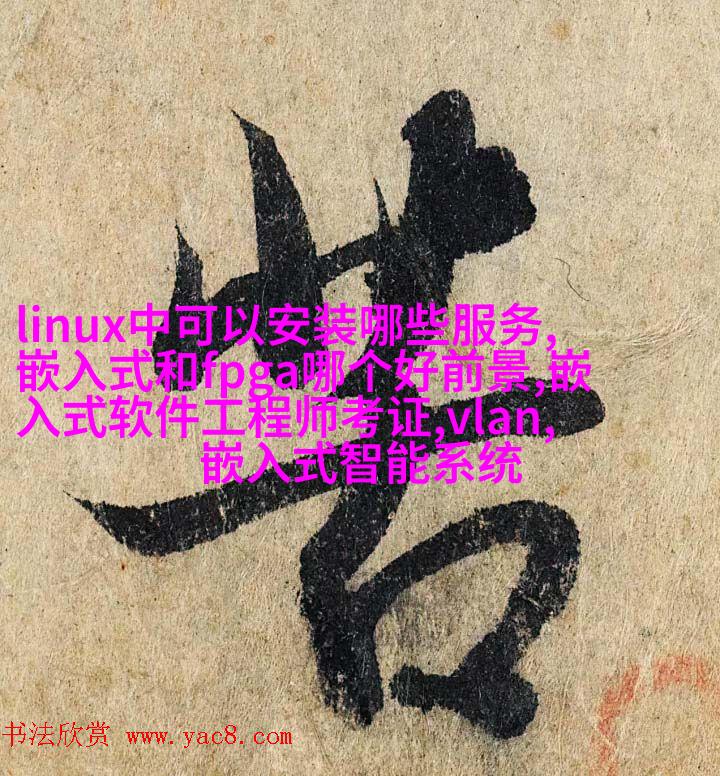 linux中可以安装哪些服务,
嵌入式和fpga哪个好前景,嵌
入式软件工程师考证,vlan,
嵌入式智能系统
书法欣赏 www.yac8.com